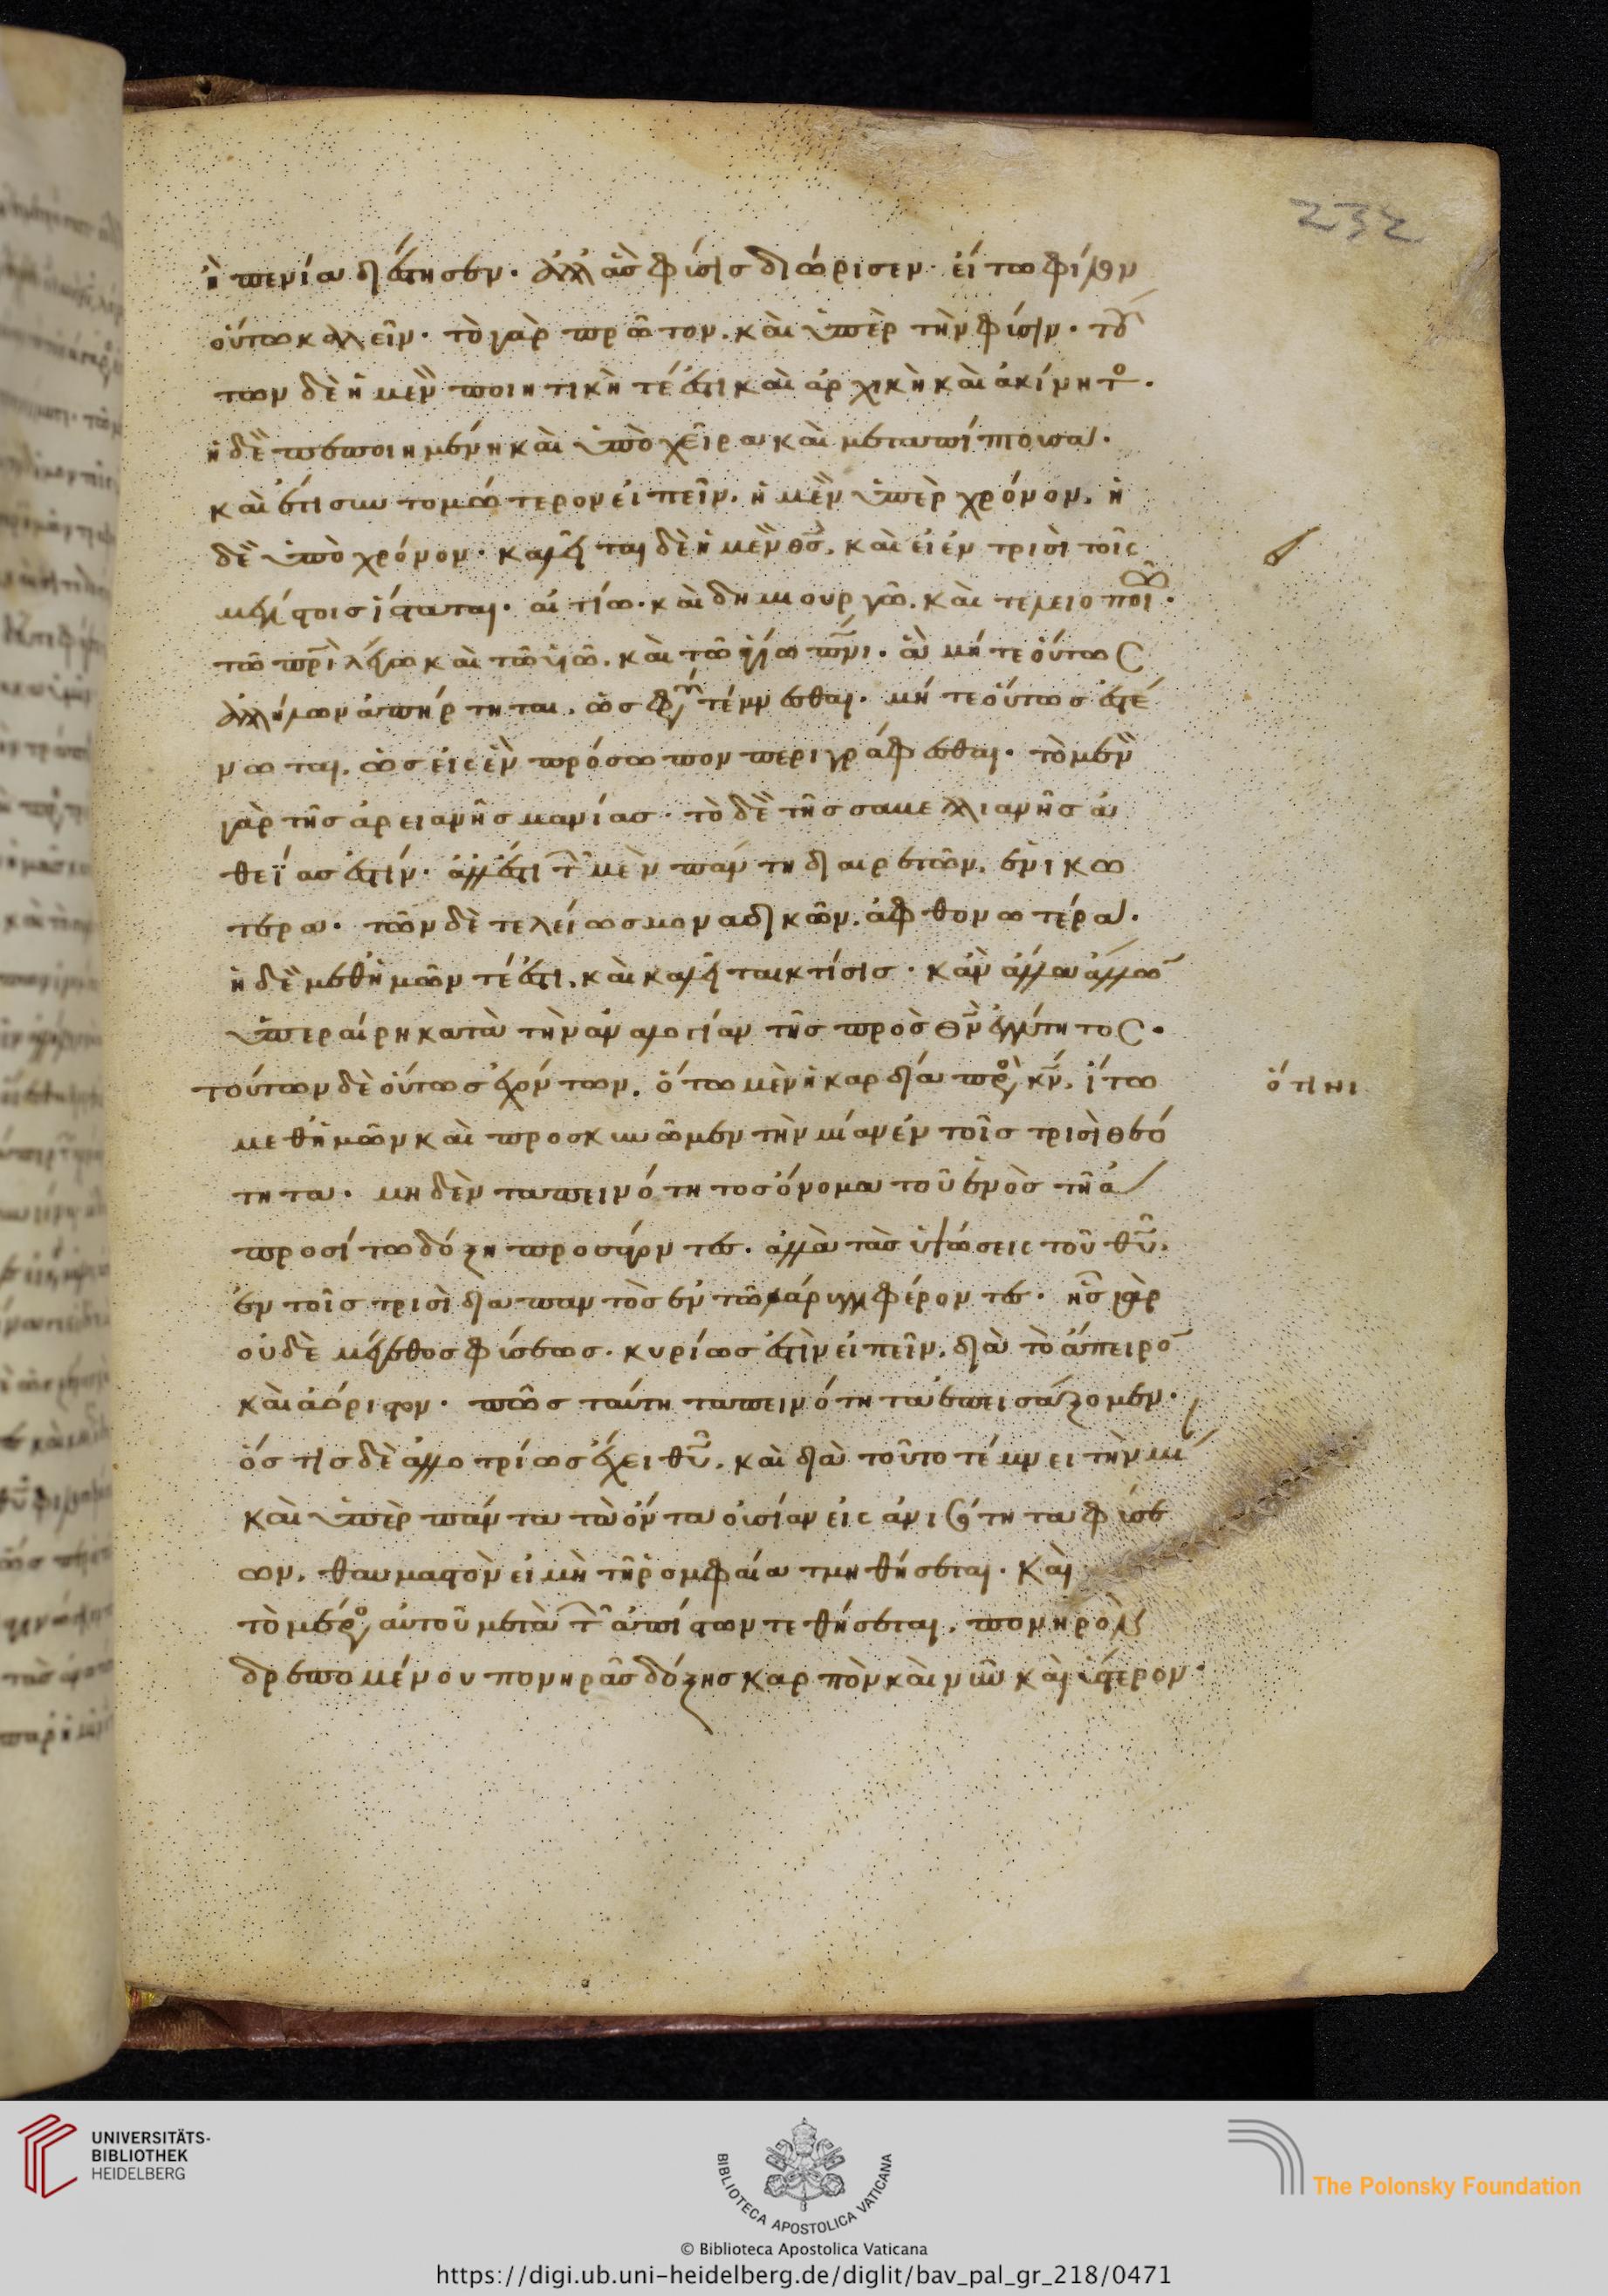 ἢ πενία διέστησεν· ἀλλ' ἃς φύσις διώρισεν· εἴ τω φίλον
οὕτω καλεῖν· τὸ γὰρ πρῶτον, καὶ ὑπὲρ τὴν φύσιν· τού
των δὲ ἡ μὲν ποιητική τέ ἐστι καὶ ἀρχικὴ καὶ ἀκίνητο·
ἡ δὲ πεποιημένη καὶ ὑπὸ χεῖρα καὶ μεταπίπτουσα·
καὶ ἔτι συντομώτερον εἰπεῖν, ἡ μὲν ὑπὲρ χρόνον, ἡ
δὲ ὑπὸ χρόνον· καλεῖται δὲ ἡ μὲν θς, καὶ εἰ ἐν τρισὶ τοῖς
μεγίστοις ἵσταται· αἰτίω· καὶ δημιουργῶ, καὶ τελειοποιῶ·
τῶ πρὶ λέγω καὶ τῶ υἱῶ, καὶ τῶ ἁγίω πνι· ἃ μήτε οὕτως
ἀλλήλων ἀπήρτηται, ὡς φύσει τέμνεσθαι· μήτε οὕτως ἐστέ
νωται, ὡς εἰς ἓν πρόσωπον περιγράφεσθαι· τὸ μὲν
γὰρ τῆς ἀρειανῆς μανίας· τὸ δὲ τῆς σαβελλιανῆς ἀ
θεΐας ἐστίν· ἀλλ' ἔστι τῶν μὲν πάντη διαιρετῶν, ἑνικω
τερα· τῶν δὲ τελείως μοναδικῶν, ἀφθονωτέρα·
ἡ δὲ μεθ' ἡμῶν τέ ἐστι, καὶ καλεῖται κτίσις· κἂν ἄλλα ἄλλων
ὑπεραίρη κατὰ τὴν ἀναλογίαν τῆς πρὸς θν ἐγγύτητος·
τούτων δὲ οὕτως ἐχόντων, ὅτω μὲν ἡ καρδία πρὸς κν, ἴτω
μεθ' ἡμῶν καὶ προσκυνῶμεν τὴν μίαν ἐν τοῖς τρισὶ θεό
τητα· μηδὲν ταπεινότητος ὄνομα τοῦ ἑνὸς τῆ ἀ
προσίτω δόξη προσφέροντες· ἀλλὰ τὰς ὑψώσεις τοῦ θυ,
ἐν τοῖς τρισὶ διαπαντὸς ἐν τῶ φάρυγγι φέροντες· ἧς γὰρ
οὐδὲ μέγεθος φύσεως· κυρίως ἐστὶν εἰπεῖν, διὰ τὸ ἄπειρον
καὶ ἀόριστον· πῶς ταύτη ταπεινότητα ἐπεισάξομεν·
ὅστις δὲ ἀλλοτρίως ἔχει θυ, καὶ διὰ τοῦτο τέμνει τὴν μί
καὶ ὑπὲρ πάντα τὰ ὄντα οὐσίαν εἰς ἀνισότητα φύσε
ων, θαυμαστὸν εἰ μὴ τῆ ῥομφαία τμηθήσεται· καὶ
τὸ μέρος αὐτοῦ μετὰ τῶν ἀπίστων τεθήσεται, πονηρὸν
δρεπομένου πονηρᾶς δόξης καρπὸν καὶ νῦν καὶ ὕστερον·
ὅτι ηι
232
UNIVERSITÄTS-
BIBLIOTHEK
HEIDELBERG
BIBLIOTECA APOSTOLICA VATICANA
The Polonsky Foundation
© Biblioteca Apostolica Vaticana
https://digi.ub.uni-heidelberg.de/diglit/bav_pal_gr_218/0471